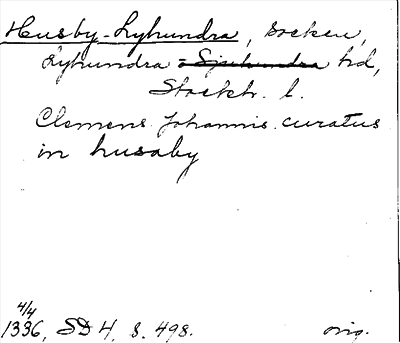 Husby-Lyhundra, socken,
Lyhundra o Sjuhundra hd,
Stockh. l.
Clemens Johannis curatus
in husaby
4/4
1336, SD 4, s. 498. orig.